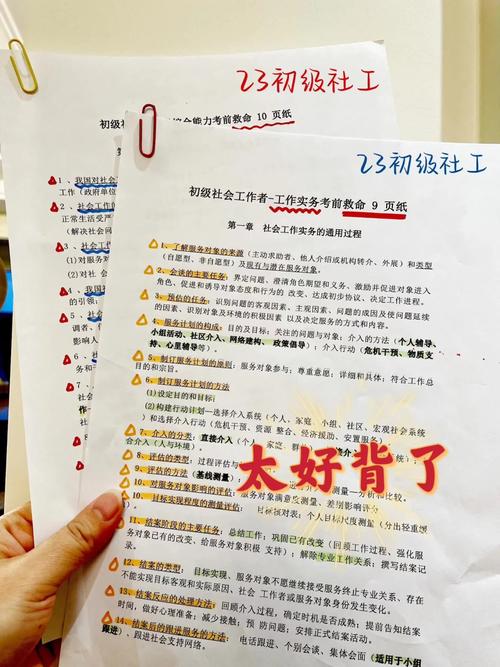 23初级社工
初级社 综合能力考前救命 10 页纸
1、我国对社会
工作（政府单位
2、社会工作
正常生活受严
(解决社会问
3、社会工
(一)对服务
(二)对社会
4、我国
的引领;
5、社会
调者、行
影响人
23初级社工
初级社会工作者-工作实务考前救命 9 页纸
第一章 社会工作实务的通用过程
1、了解服务对象的来源（主动求助者、他人介绍或机构转介、外展）和类型
(自愿型、非自愿型）及现有与潜在服务对象。
2、会谈的主要任务：界定问题、澄清角色期望和义务、激励并促进对象进入
角色、促进和诱导对象态度和行为的 改变、达成初步协议、决定工作进程。
3、预估的任务：识别问题的客观因素、主观因素、问题的成因及使问题延续
的因素、识别对象及环境的积极因素 以及决定服务的方式和内容。
4、服务计划的构成：目的及目标；关注的问题与对象；介入的方法（个人辅导、
小组活动、社区介入、网络建构、政策倡导）；介入行动（危机干预、物质支
持、心里辅导等）。
5、制订服务计划的原则：服务对象参与；尊重意愿；详细和具体；符合工作总
目的和宗旨。
6、制订服务计划的方法
(1)设定目的和目标;
(2)构建行动计划—选择介入系统（个人、家庭、小组、社区、宏观社会系统
)和选择介入行动（危机干预、资源 整合、经济援助、安置服务）
7、介入的分类：直接介入（个人、家庭、群
合介入（人与环境）。
8、评估的类型：过程评估与
9、评估的方法（基线测量）
10、对服务对象影响的评估：服务对象满意度测量、差别影响评分
10、目标实现程度的测量评估： 目标核对表；个人目标尺度测量（分出轻重缓
太好背了
11、结案阶段的主要任务：总结工作；巩固已有改变（回顾工作过程、强化服
务对象已有的改变、给予服务对象积极 支持）；解除专业工作关系；撰写结案记
录。
12、结案的类型： 目标实现、服务对象不愿继续接受服务终止专业关系、存在
不能实现目标客观和实际原因、社会 工作者或服务对象身份发生变化。
13、结案反应的处理方法：回顾介入过程，确定时机是否成熟；提前告知结案
时间，做好心理准备；减少接触；预 防问题；安排正式结案活动。
14、结案后的跟进服务的方法： 电话跟进、个别会谈、集体会面（适用于小组
跟进）、跟进社会支持网络。